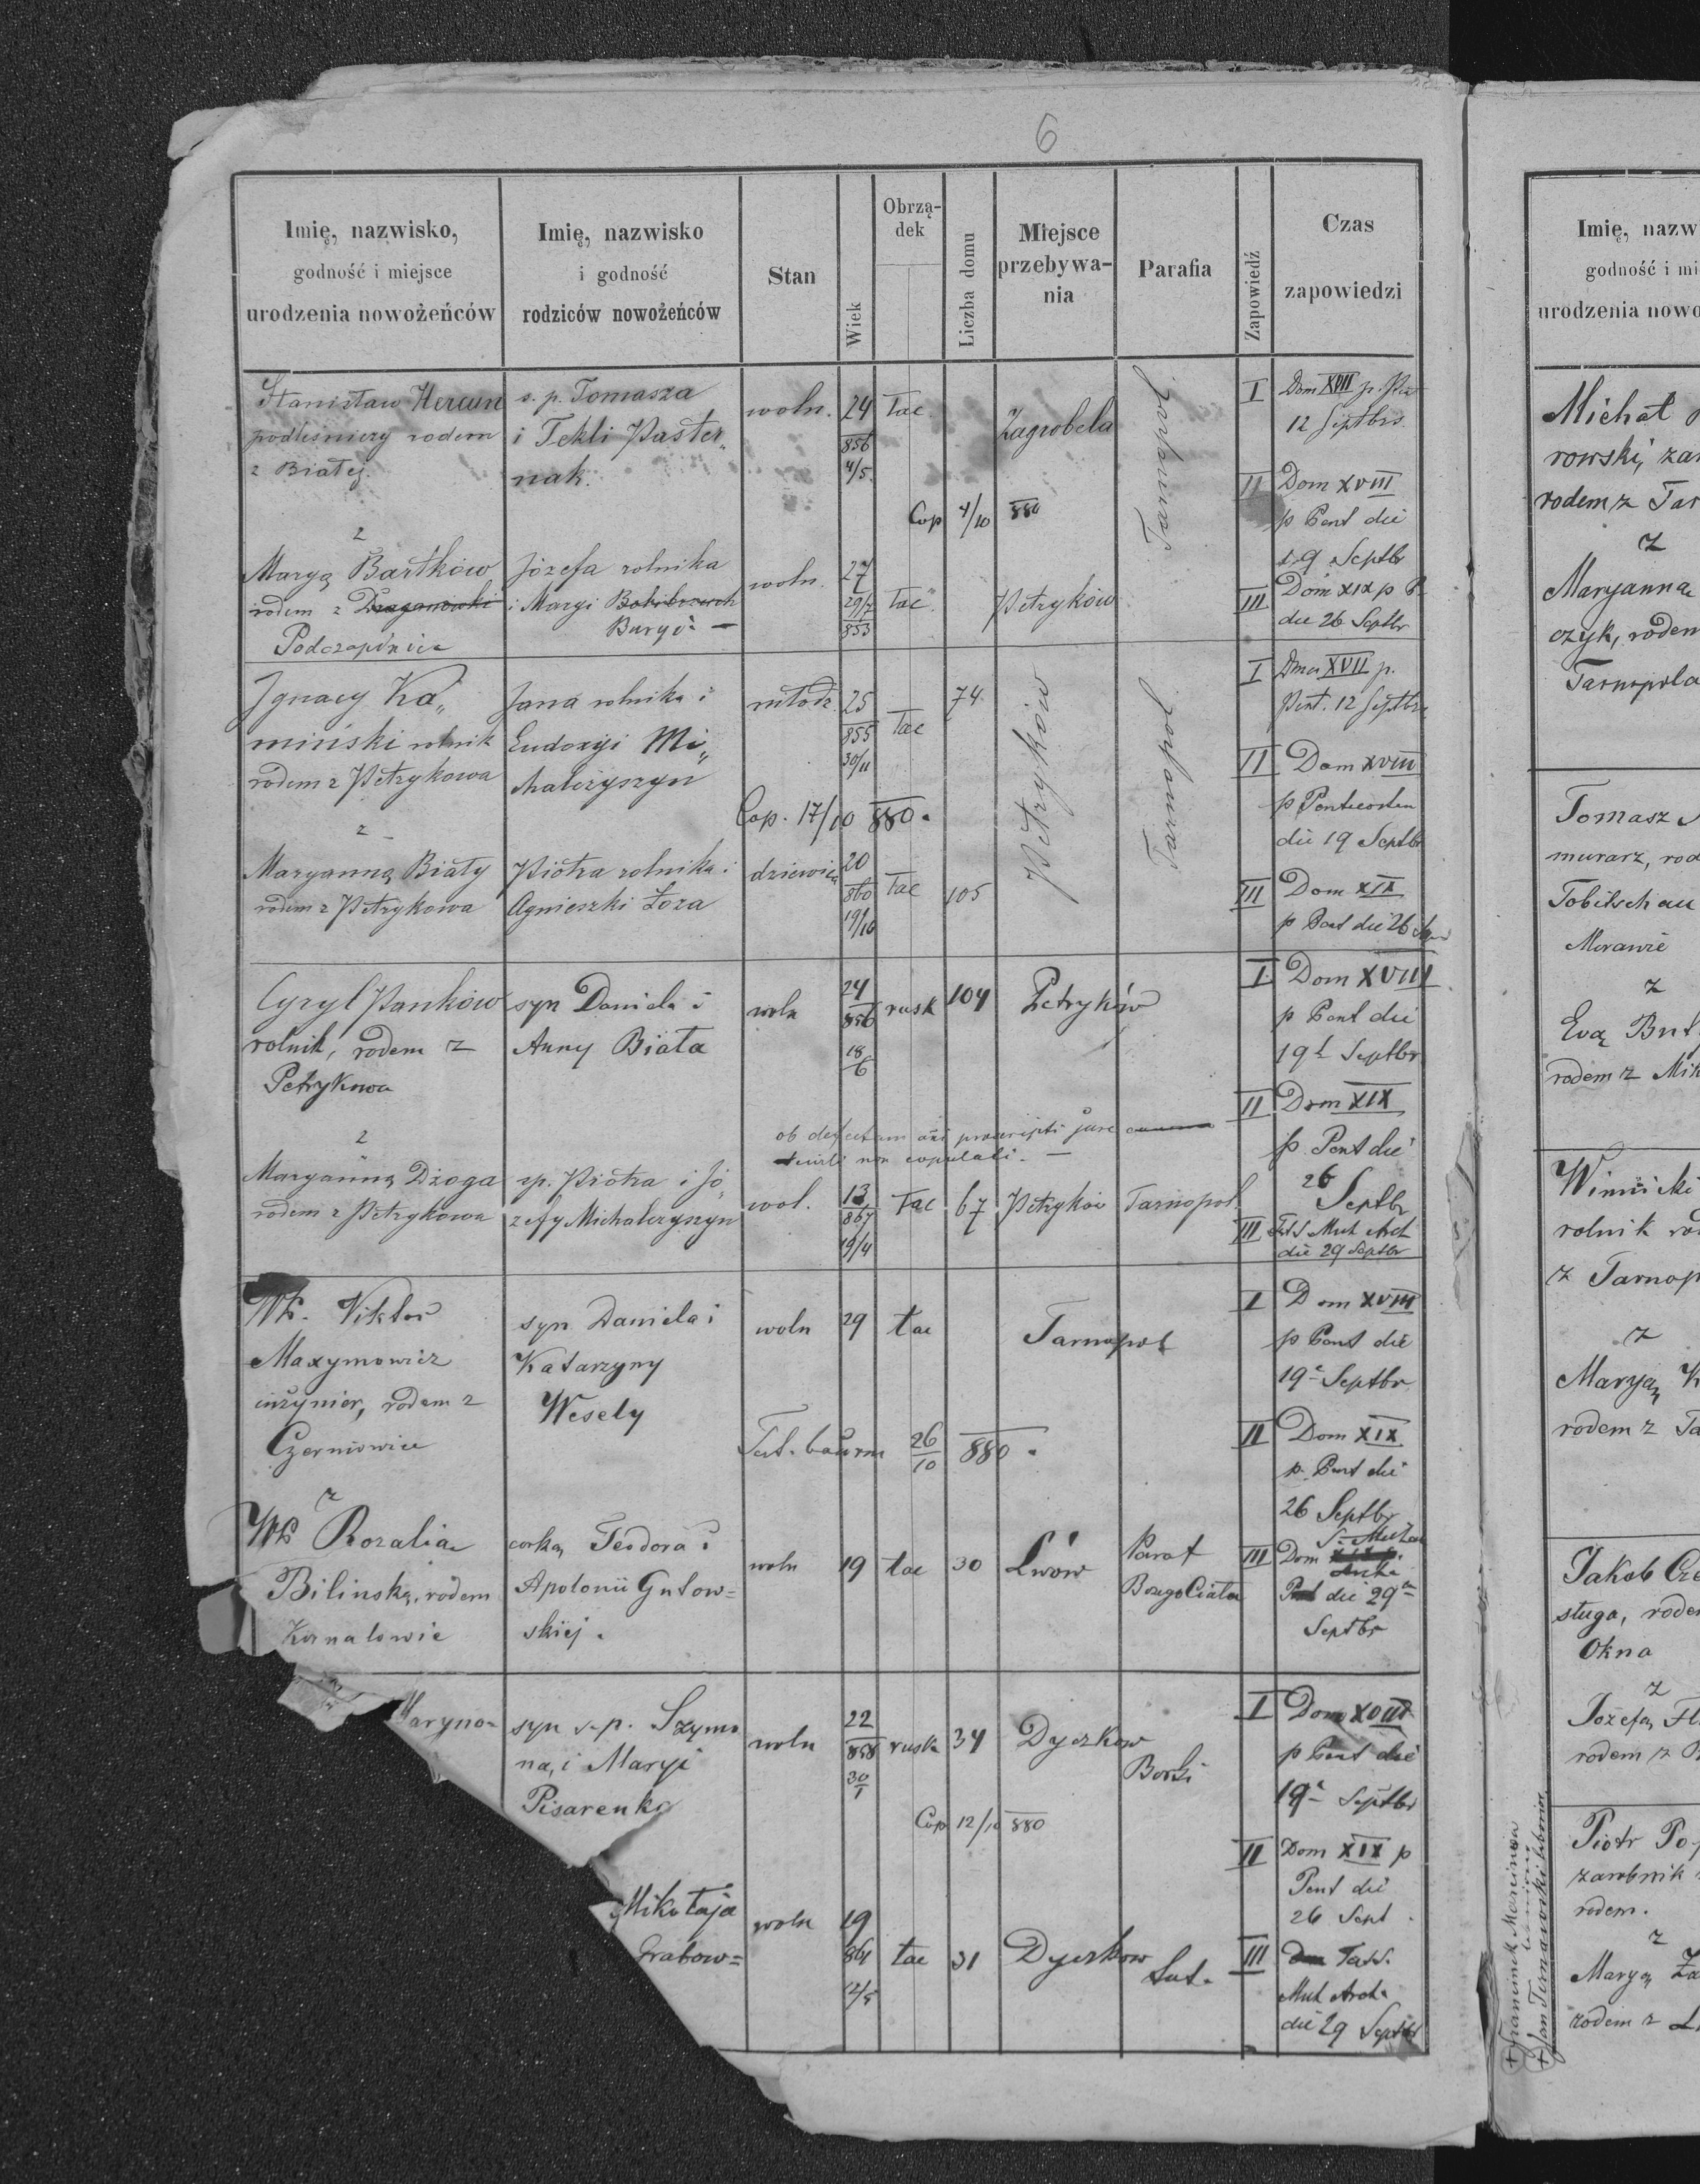 6
Imię, nazwisko,
godność i miejsce
urodzenia nowożeńców
Imię, nazwisko
i godność
rodziców nowożeńców
Stan
Wiek
Obrzą-
dek
Liczba domu
Miejsce
przebywa-
nia
Parafia
Zapowiedź
Czas
zapowiedzi
Stanisław Hercun
podleśniczy rodem
z Białej
s. p. Tomasza
i Tekli Paster„
nak.
woln.
24
856
4/5
łac.
Zagrobela
Tarnopol
I
Dom XVII p.
12 Septbrs
II
Dom XVIII
p Pent die
19 Septbr
Cop 4/10 880
z
Maryą Bartków
rodem z Draganówki
Podczapiniec
Józefa rolnika
i Maryi
Buryj
woln.
27
29/7
853
łac
Petryków
III
Dom XIX p P.
die 26 Septbr
Ignacy Ka„
miński rolnik
rodem z Petrykowa
Jana rolnika i
Eudoxyi Mi„
chalczyszyn
młodz.
25
855
30/11
łac
74.
Petryków
Tarnopol
I
Dmca XVII p.
Pent. 12 Septbrs
II
Dom XVIII
p Pentecosten
die 19 Septbr
Cop. 17/10 880.
z
Maryanną Biały
rodem z Petrykowa
Piotra rolnika i
Agnieszki Łoza
dziewica
20
860
19/10
łac
105
III
Dom XIX
p Pent die 26
Cyryl Pańków
rolnik, rodem z
Petrykowa
syn Daniela i
Anny Biała
woln
24
856
18
6
rusk
104
Petryków
I
Dom XVIII
p Pent die
19 Septbr
II
Dom XIX
p Pent die
26
Septbr
ob defectum praescripti jure
non copulati. —
z
Maryanną Dżoga
rodem z Petrykowa
sp. Piotra i Jó„
zefy Michalczyszyn
wol.
13
867
19/4
łac
67
Petryków
Tarnopol
III
Fest S Mich Arch
die 29 Septbr
WP. Viktor
Maxymowicz
inżynier, rodem z
Czerniowiec
syn Daniela i
Katarzyny
Wesely
woln
29
łac
Tarnopol
I
Dom XVIII
p Pent die
19 Septbr
II
Dom XIX
p. Pent die
26 Septbr
26
10
880.
z
WP Rozalia
Bilinską, rodem
Kornalowic
corką Teodora i
Apolonii Gutow=
skiej.
woln
19
łac
30
Lwów
Paraf
Bożego Ciała
III
Dom S. Micha
Arch.
die 29
Septbr
Maryno-
syn s.p. Szymo
na, i Maryi
Pisarenko
woln
22
858
30
1
rusk
34
Dyczkow
Borki
I
Dom XVIII
p Pent die
19 Septbr
Cop 12/10 880
II
Dom XIX p
Pent die
26 Sept.
Mikołaja
Grabow=
woln
19
861
12/5
łac
31
Dyczkow
Lat.
III
Fest S.
Mich Arch.
die 29 Septbr
Imię, nazw
godność i mi
urodzenia nowo
Michał
rowski, zar
rodem z Tar
z
Maryanna
czyk, rodem
Tarnopola
Tomasz
murarz, rod
Tobitschau
Morawie
z
Evą But
rodem z Mik
Winnicki
rolnik rod
z Tarnop
z
Maryą K
rodem z Ta
Jakob Cze
sługa, rodem
Okna
z
Jozefą Fl
rodem z
Piotr Po
zarobnik
rodem.
z
Maryą Za
rodem z